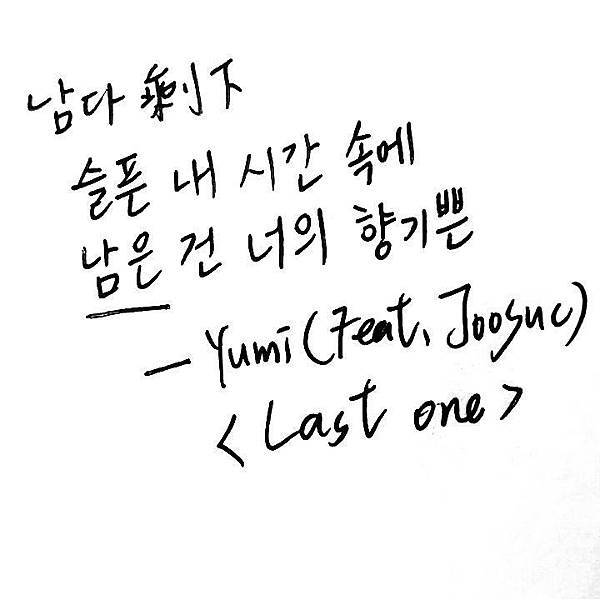 남다 剩下
슬픈 내 시간 속에
남은 건 너의 향기쁜
- Yumi (Feat. Joosuc)
< Last one >